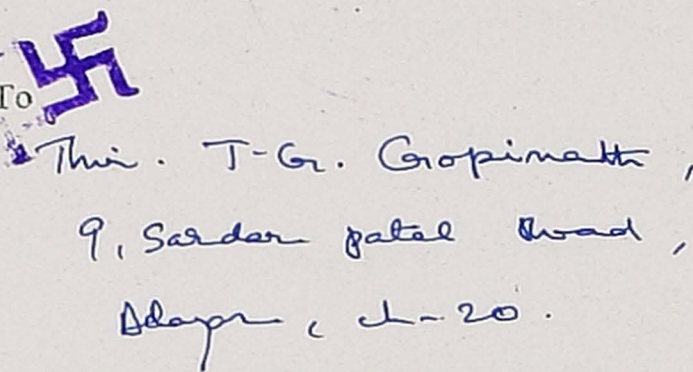 To
Thiru. T-G. Gopinath,
9, Sardar patel Road,
Adayar, ch-20.